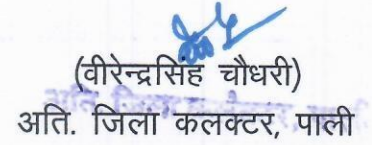 (वीरेन्द्रसिंह चौधरी)
अति. जिला कलक्टर, पाली